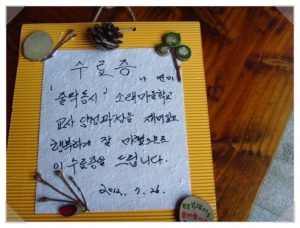 수료증
나 연미
'줄탁동시' 소래마을학교
교사 양성과정을 재미있고
행복하게 잘 마쳤으므로
이 수료증을 드립니다.
2012. 7. 26.